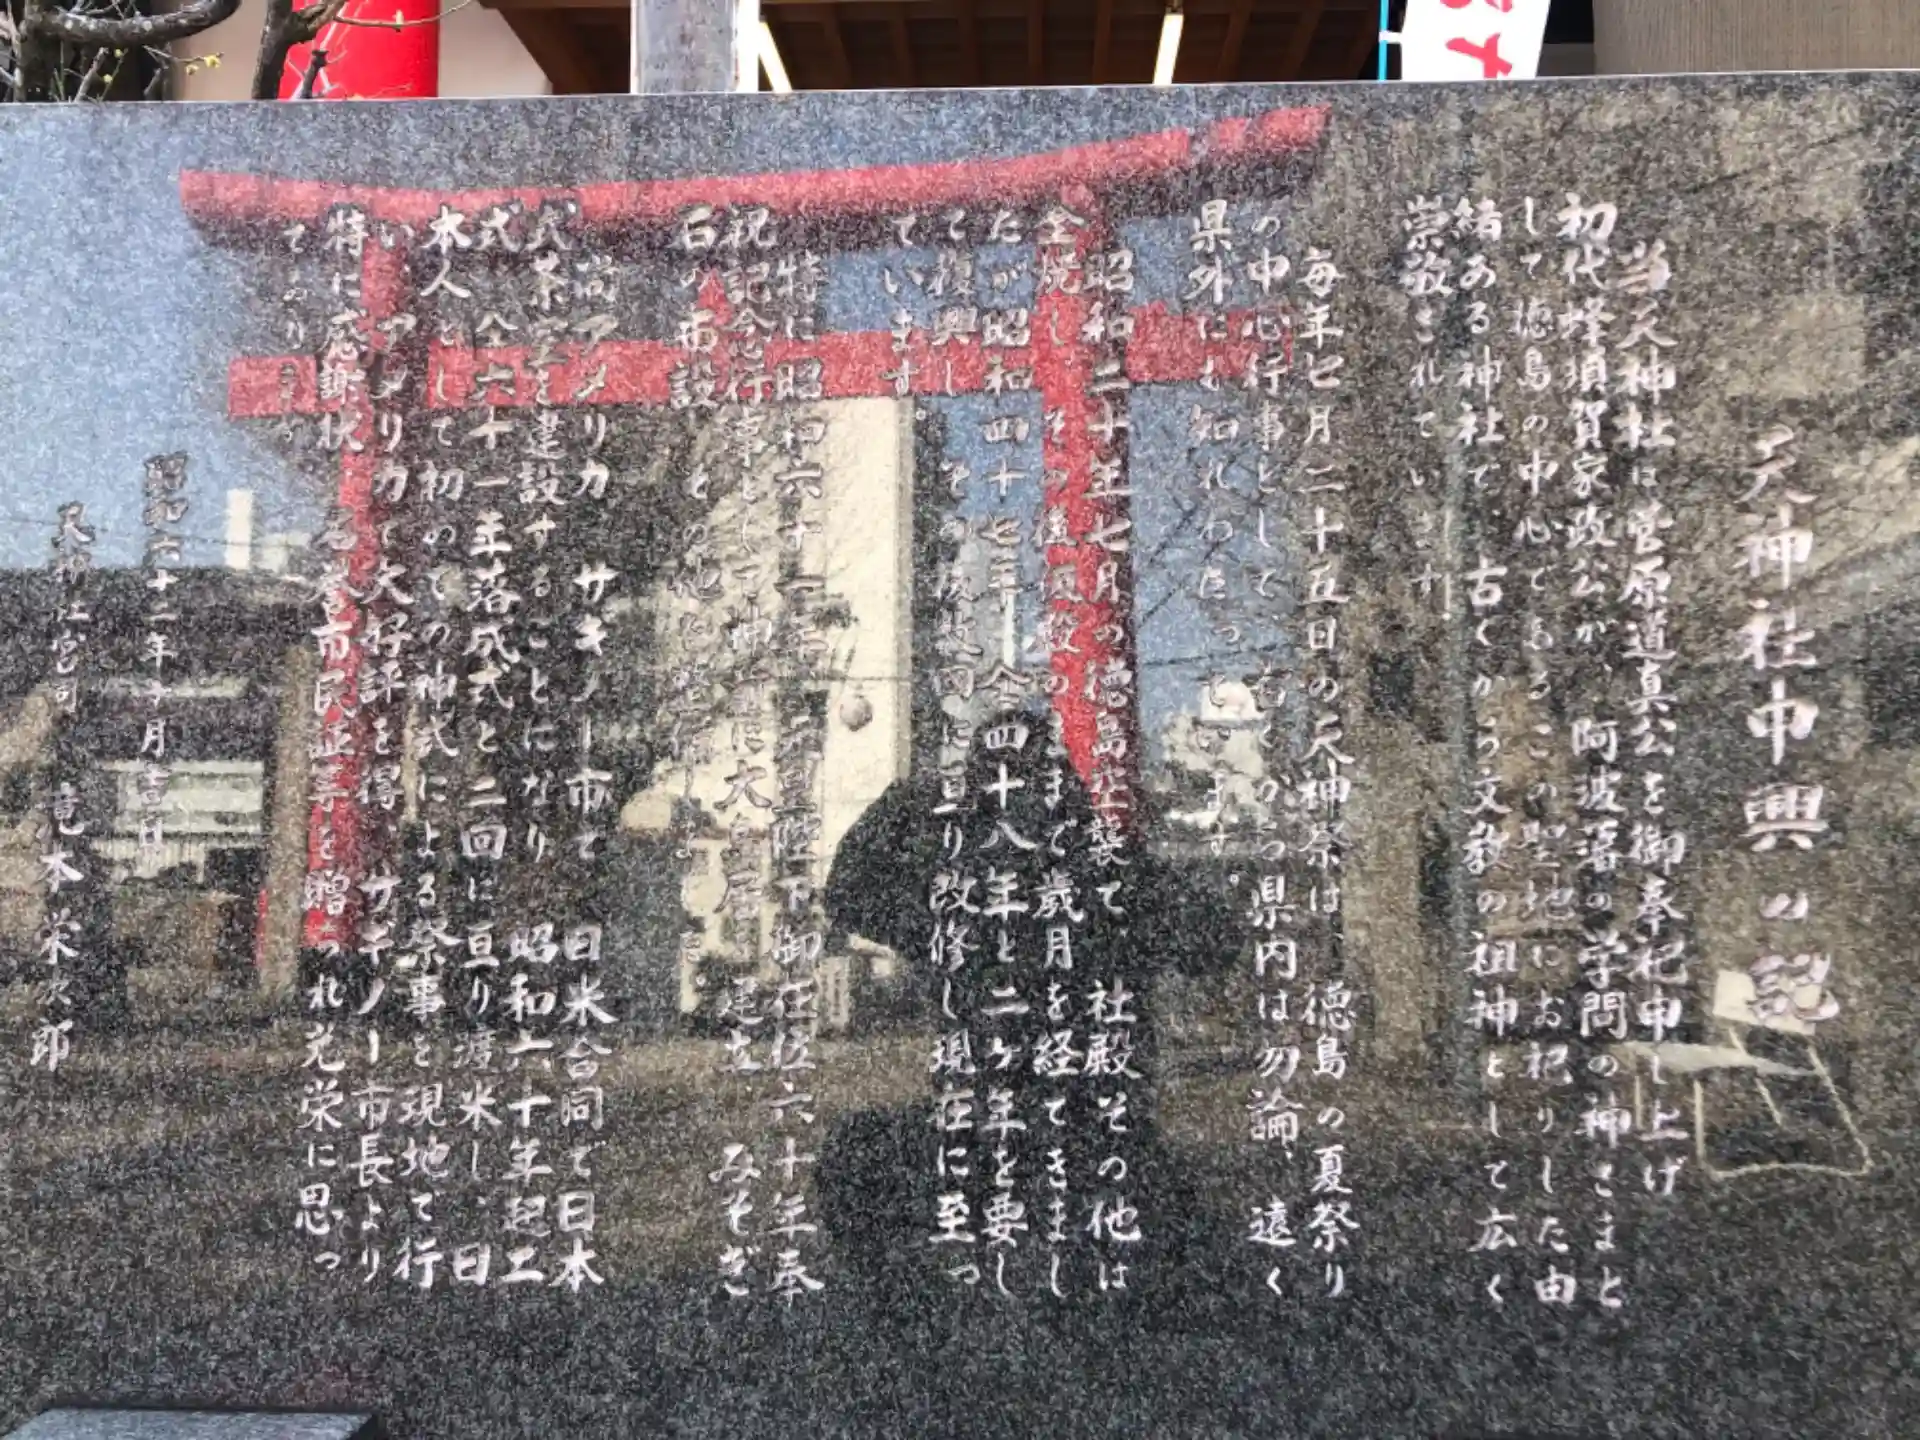 天神社中興の説
当天神社は菅原道真公を御奉祀申し上げ
初代蜂須賀家政公が、阿波藩の学問の神さまと
して徳島の中心であるこの聖地にお祀りした由
緒ある神社で、古くから文教の祖神として広く
崇敬されています。
毎年七月二十五日の天神祭は、徳島の夏祭り
の中心行事として、古くから県内は勿論、遠く
県外にも知れわたっています。
昭和二十年七月の徳島空襲て、社殿その他は
全焼し、その後仮殿のままで歳月を経てきまし
たが昭和四十七年、全四十八年と二ヶ年を要し
て復興し、その後数回に亘り改修し現在に至っ
ています。
特に昭和六十 年 陛下御在位六十年奉
祝記念行事として神 に大鳥居 建立 みそぎ
石の 設 その他
尚アメリカ サギノー市て 日米合同で日本
式茶室を建設することになり 昭和六十年起工
式、全六十一年落成式と二回に亘り渡米し、日
本人として初めての神式による祭事を現地で行
い、アメリカて大好評を得、サギノー市長より
特に感謝状 名誉市民証 を贈られ光栄に思っ
てあります
昭和六十二年 月吉日
天神社宮司 竜木栄次郎